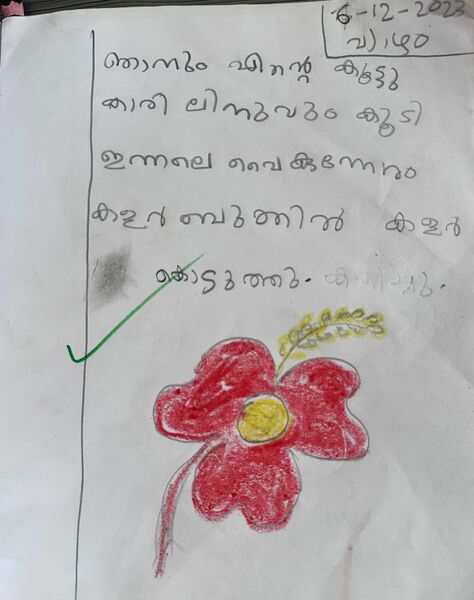 6-12-2023
വ്യാഴം
ഞാനും എന്റെ കൂട്ടു
കാരി ലിനുവും കൂടി
ഇന്നലെ വൈകുന്നേരം
കളർ ബുത്തിൽ കളർ
കൊടുത്തു.